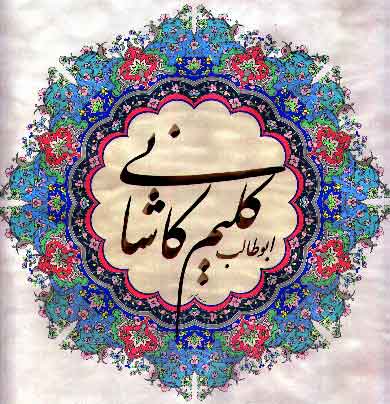 ابوطالب
کلیم کاشانی